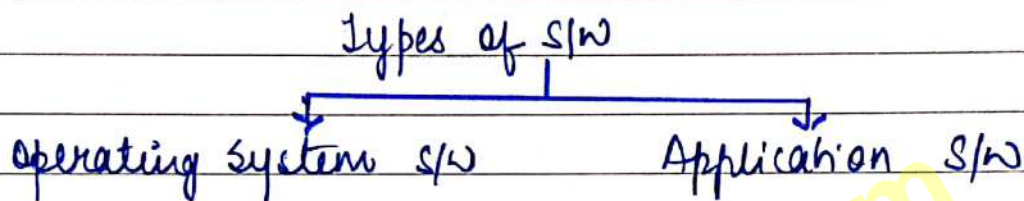 Types of S/W
Operating System S/W Application S/W
m